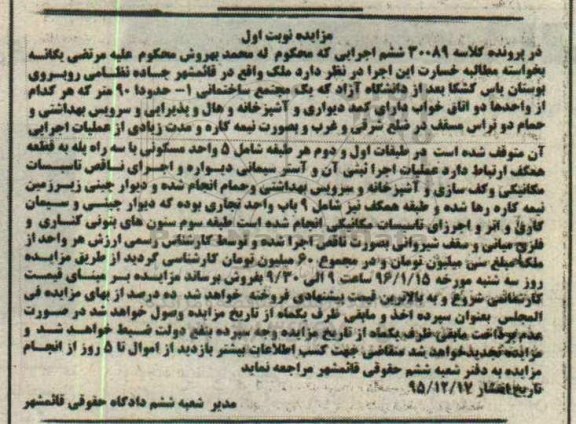 مزایده نوبت اول
در پرونده کلاسه ۳۰۰۸۹ ششم اجرایی که محکوم له محمد بهروش محکوم علیه مرتضی یگانه
بخواسته مطالبه خسارت این اجرا در نظر دارد ملک واقع در قائمشهر جاده نظامی روبروی
بوستان یاس کشکا بعد از دانشگاه آزاد که یک مجتمع ساختمانی ۱- حدودا ۹۰ متر که هر کدام
از واحدها دو اتاق خواب دارای کمد دیواری و آشپزخانه و هال و پذیرایی و سرویس بهداشتی و
حمام دو تراس مسقف در ضلع شرقی و غرب و بصورت نیمه کاره و مدت زیادی از عملیات اجرایی
آن متوقف شده است در طبقات اول و دوم هر طبقه شامل ۵ واحد مسکونی با سه راه پله به قطعه
همکف ارتباط دارد عملیات اجرا بتنی آن و آستر سیمانی دیواره و اجرای ناقص تاسیسات
مکانیکی وکف سازی و آشپزخانه و سرویس بهداشتی وحمام انجام شده و دیوار چینی زیرزمین
نیمه کاره رها شده و طبقه همکف نیز شامل ۹ باب واحد تجاری بوده که دیوار چینی و سیمان
کاری و اتر و اجرزای تاسیسات مکانیکی انجام شده است طبقه سوم ستون های بتونی کناری و
فلزی میانی و سقف شیروانی بصورت ناقص اجرا شده و توسط کارشناس رسمی ارزش هر واحد از
ملک مبلغ سی میلیون تومان و در مجموع ۶۰ میلیون تومان کارشناسی گردید از طریق مزایده
روز سه شنبه مورخه ۹۶/۱/۱۵ ساعت ۹ الی ۹/۳۰ بفروش برساند مزایده بر مبنای قیمت
کارشناسی شروع و به بالاترین قیمت پیشنهادی فروخته خواهد شد ده درصد از بهای مزایده فی
المجلس بعنوان سپرده اخذ و مابقی ظرف یکماه از تاریخ مزایده وصول خواهد شد در صورت
عدم پرداخت مابقی ظرف یکماه از تاریخ مزایده وجه سپرده بنفع دولت ضبط خواهد شد و
مزایده تجدید خواهد شد متقاضی جهت کسب اطلاعات بیشتر بازدید از اموال تا ۵ روز از انجام
مزایده به دفتر شعبه ششم حقوقی قائمشهر مراجعه نماید
تاریخ انتشار ۹۵/۱۲/۱۷
مدیر شعبه ششم دادگاه حقوقی قائمشهر